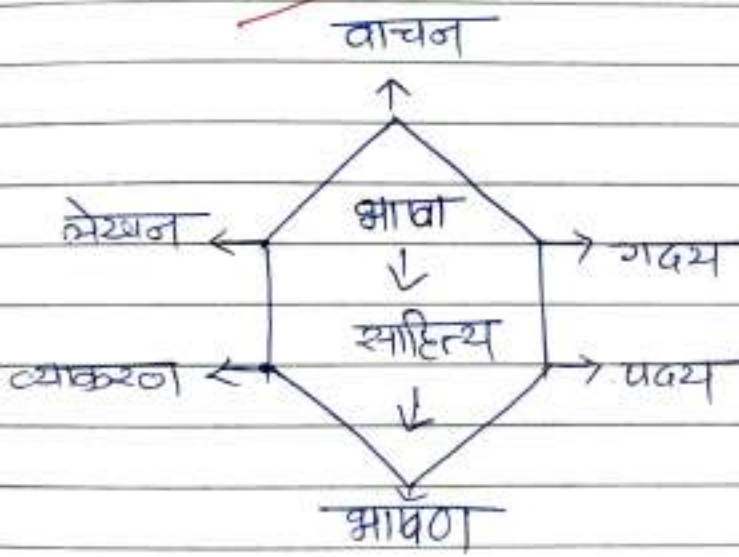 वाचन
भाषा
लेखन
गदय
साहित्य
व्याकरण
पदय
भाषण